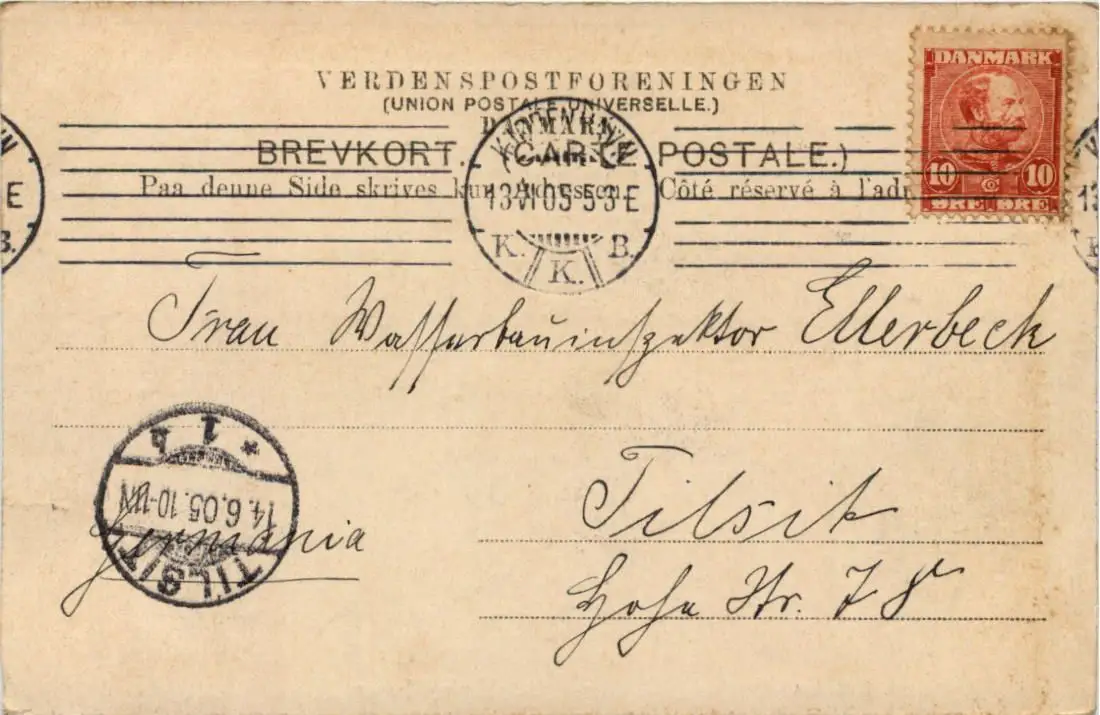 VERDENSPOSTFORENINGEN
(UNION POSTALE UNIVERSELLE.)
DANMARK
BREVKORT. (CARTE POSTALE.)
Paa denne Side skrives kun Adressen. Côté réservé à l'adr
DANMARK
10 10
ØRE ØRE
KJØBENHAVN
13 VI 05 5-3 E
K. K. B.
Frau Wasserbauinspektor Ellerbeck
Tilsit
Hohe Str. 78
Germania
TILSIT
14.6.05.10-11N
* 1 b